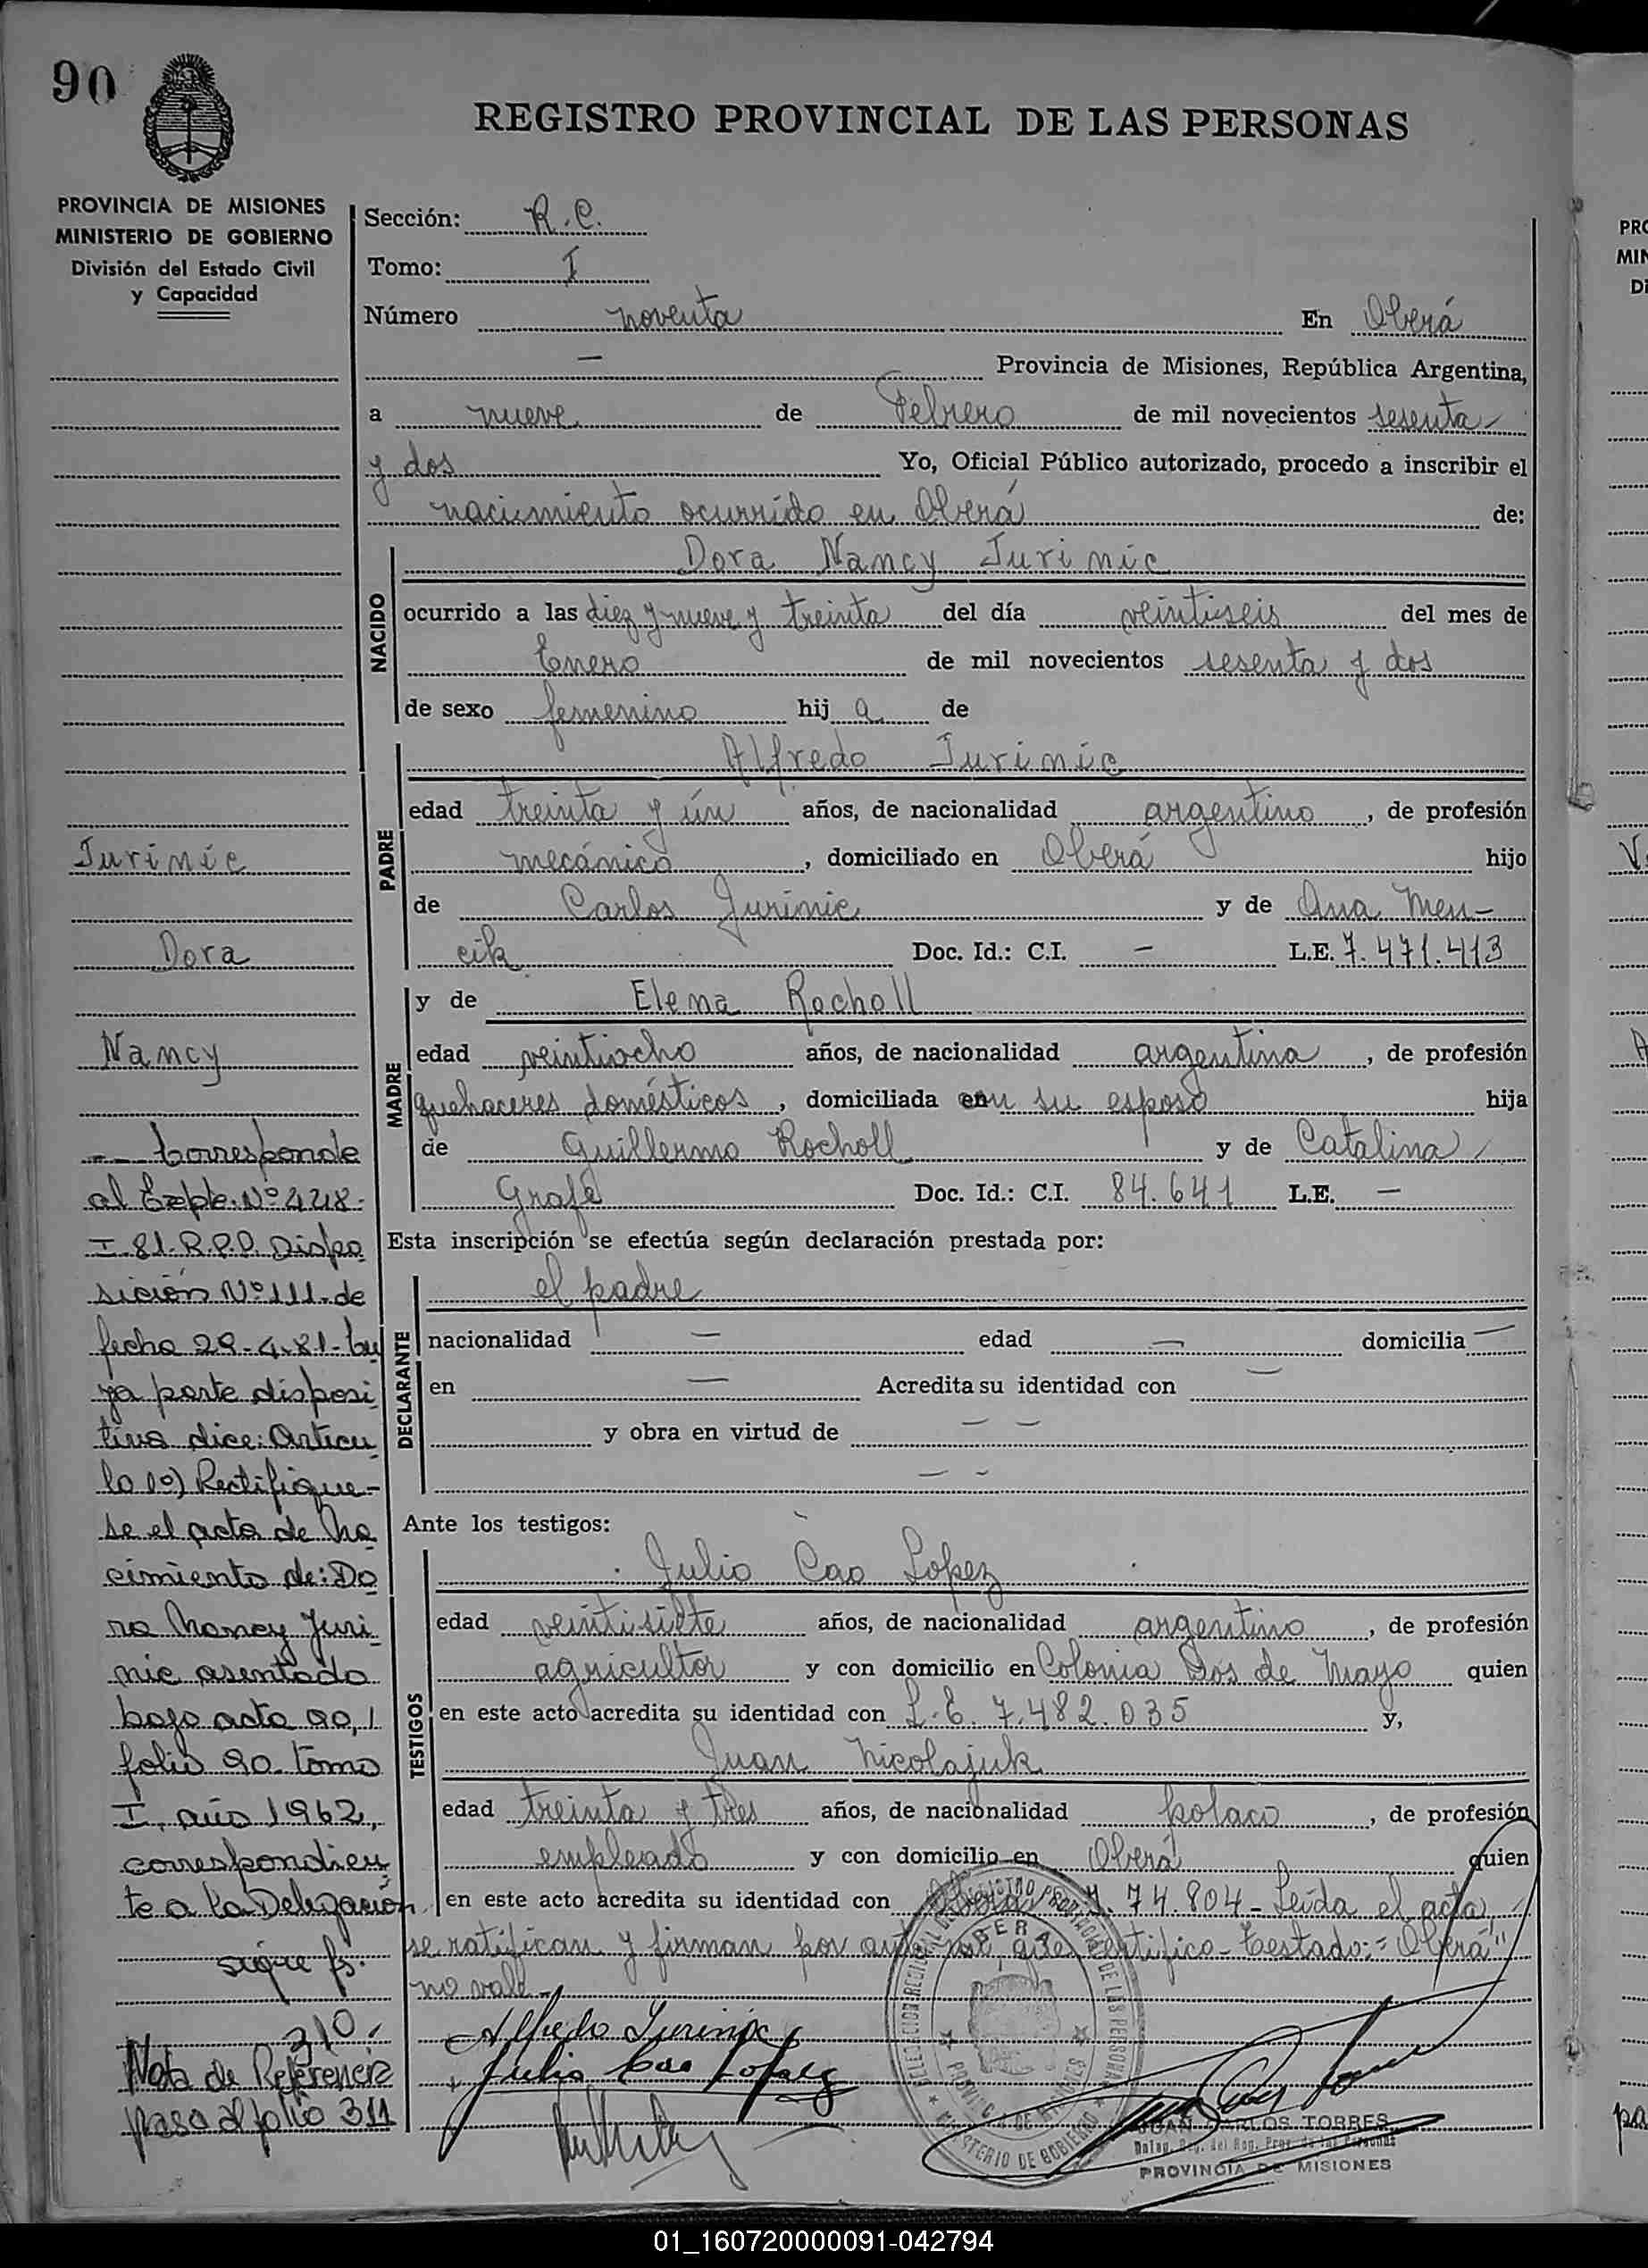 90
REGISTRO PROVINCIAL DE LAS PERSONAS
PROVINCIA DE MISIONES
MINISTERIO DE GOBIERNO
División del Estado Civil
y Capacidad
Sección: R.C.
Tomo: I
Número noventa En Oberá
— Provincia de Misiones, República Argentina,
a nueve de Febrero de mil novecientos sesenta
y dos Yo, Oficial Público autorizado, procedo a inscribir el
nacimiento ocurrido en Oberá de:
NACIDO
Dora Nancy Jurinic
ocurrido a las diez y nueve y treinta del día veintiseis del mes de
Enero de mil novecientos sesenta y dos
de sexo femenino hij a de
PADRE
Alfredo Jurinic
edad treinta y ún años, de nacionalidad argentino, de profesión
mecánico, domiciliado en Oberá hijo
de Carlos Jurinic y de Ana Men-
cik Doc. Id.: C.I. — L.E. 7.471.413
MADRE
y de Elena Rocholl
edad veintiocho años, de nacionalidad argentina, de profesión
quehaceres domésticos, domiciliada en su esposo hija
de Guillermo Rocholl y de Catalina
Grafe Doc. Id.: C.I. 84.641 L.E. —
Esta inscripción se efectúa según declaración prestada por:
DECLARANTE
el padre
nacionalidad — edad — domicilia —
en — Acredita su identidad con —
y obra en virtud de — —
— —
Ante los testigos:
TESTIGOS
Julio Cao Lopez
edad veintisiete años, de nacionalidad argentino, de profesión
agricultor y con domicilio en Colonia Dos de Mayo quien
en este acto acredita su identidad con L.E. 7.482.035 y,
Juan Nicolajuk
edad treinta y tres años, de nacionalidad polaco, de profesión
empleado y con domicilio en Oberá quien
en este acto acredita su identidad con 74.804- Leída el acta,
se ratifican y firman por ante mí que certifico- Testado: "Oberá"
no vale-
Alfredo Jurinic
Julio Cao Lopez
JUAN CARLOS TORRES
PROVINCIA DE MISIONES
Jurinic
Dora
Nancy
Corresponde
al Expte. Nº 428-
I-81. R.P.P. Dispo
sición Nº 111-de
fecha 29-4-81-Cu
ya parte disposi
tiva dice: Artícu
lo 1º) Rectifíque-
se el acta de Na
cimiento de: Do
ra Nancy Juri-
nic asentado
bajo acta 90,
folio 90 tomo
I, año 1962,
correspondien
te a la Delegación
sigue fs.
310.
Nota de Referencia
pasa al folio 311
01_160720000091-042794